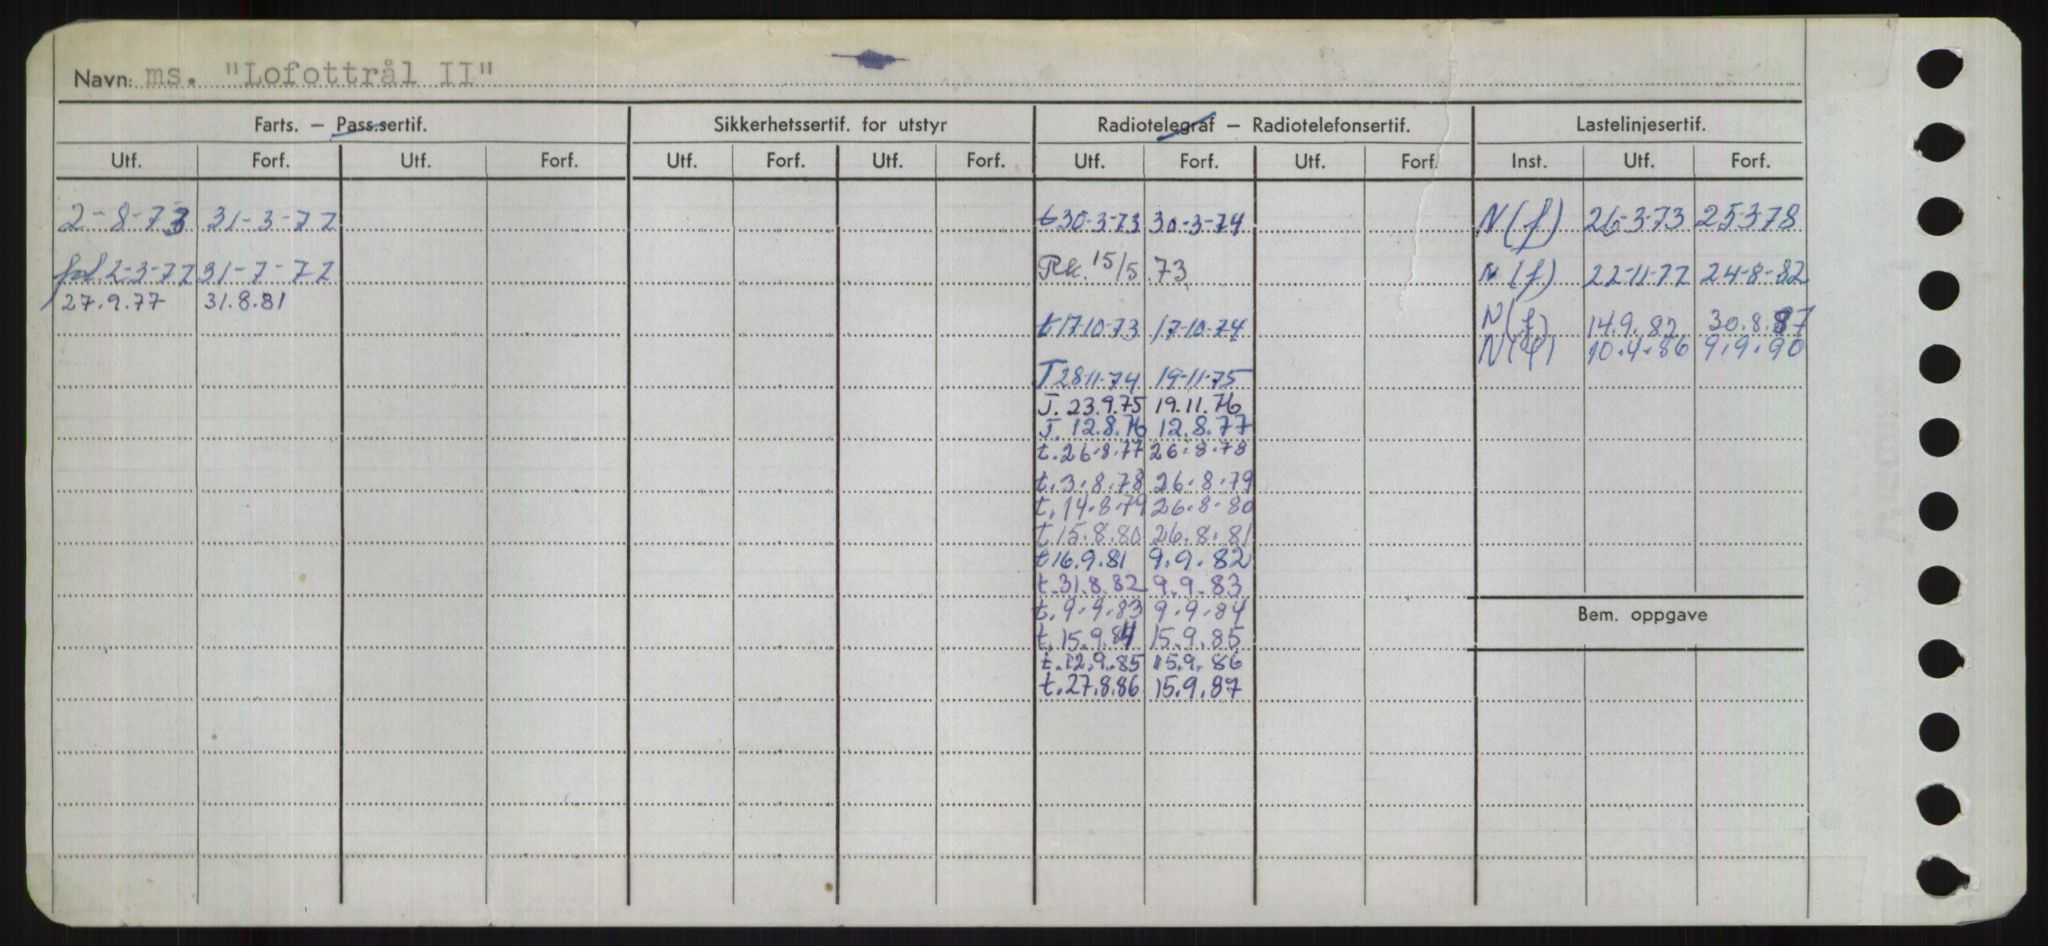 Navn: ms. "Lofottrål II"
Farts. – Pass.sertif. Sikkerhetssertif. for utstyr Radiotelegraf – Radiotelefonsertif. Lastelinjesertif.
Utf. Forf. Utf. Forf. Utf. Forf. Utf. Forf. Utf. Forf. Utf. Forf. Inst. Utf. Forf.
2-8-73 31-3-77 t 30-3-73 30-3-74 N(f) 26-3-73 25-3-78
2-3-77 31-7-77 Rk. 15/5 73 N(f) 22-11-77 24-8-82
27.9.77 31.8.81
t 17-10-73 17-10-74 N(f) 14.9.82 30.8.87
N(f) 10.4.86 9.9.90
T 28-11-74 19-11-75
T. 23.9.75 19.11.76
T. 12.8.76 12.8.77
t. 26.8.77 26.8.78
t. 3.8.78 26.8.79
t. 14.8.79 26.8.80
t. 15.8.80 26.8.81
t 16.9.81 9.9.82
t. 31.8.82 9.9.83
t. 9.9.83 9.9.84 Bem. oppgave
t. 15.9.84 15.9.85
t. 12.9.85 15.9.86
t. 27.8.86 15.9.87